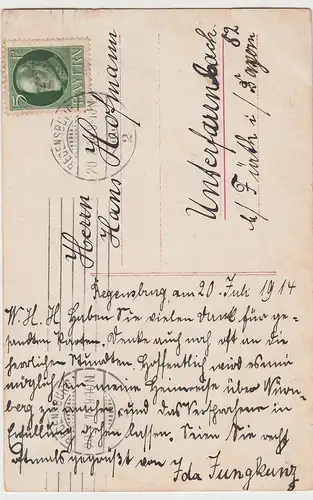 5
BAYERN
REGENSBURG
20
2
Herrn
Hans Hofmann
Unterfarrnbach 82
b/ Fürth i/ Bayern
Regensburg am 20. Juli 1914
W. H. H. Haben Sie vielen Dank für ge-
sandten Karten. Denke auch noch oft an die
herrlichen Stunden. Hoffentlich wird es mir
möglich sein meine Heimreise über Nürn-
berg zu machen und das Versprochene in
Erfüllung gehen lassen. Seien Sie recht
oftmals gegrüßt von Ida Jungkunz